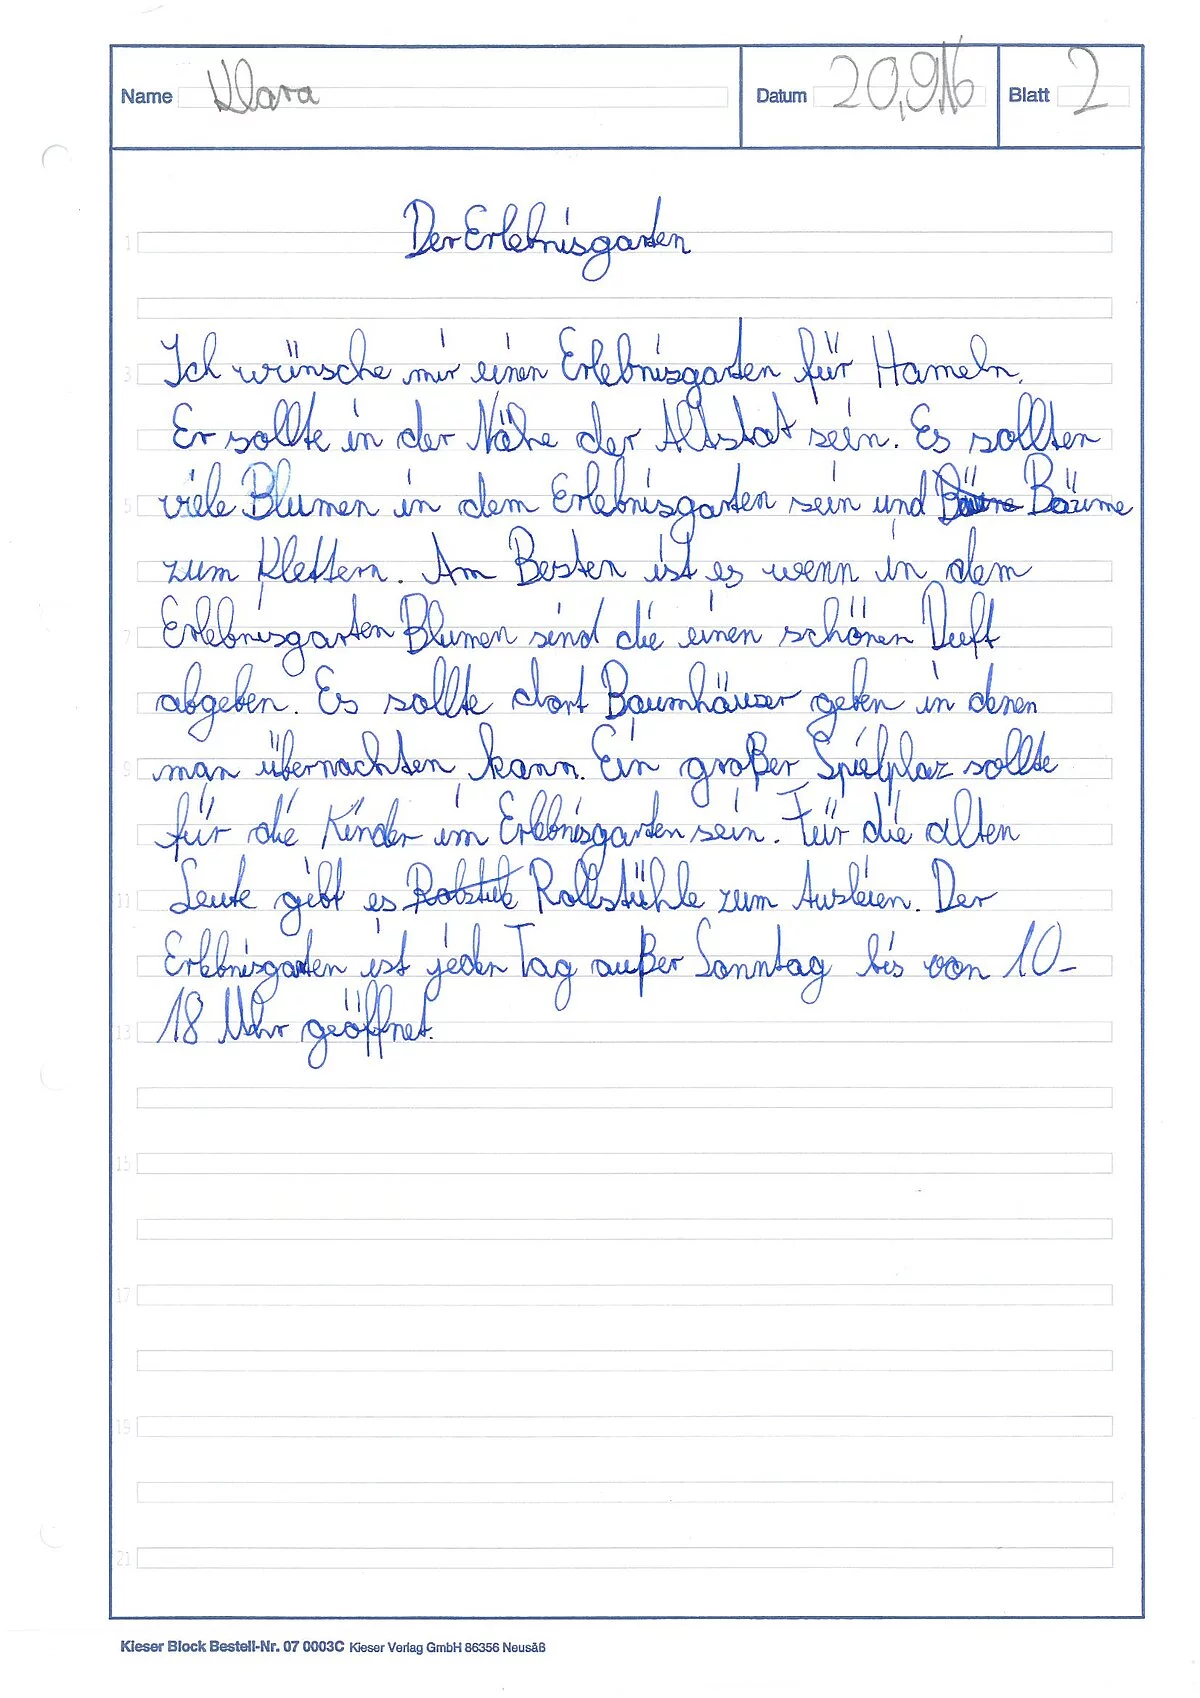 Name Klara Datum 20,9.16 Blatt 2
1 Der Erlebnisgarten
3 Ich wünsche mir einen Erlebnisgarten für Hameln.
Er sollte in der Nähe der Altstat sein. Es sollten
5 viele Blumen in dem Erlebnisgarten sein und Bäume
zum Klettern. Am Besten ist es wenn in dem
7 Erlebnisgarten Blumen sind die einen schönen Duft
abgeben. Es sollte dort Baumhäuser geben in denen
9 man übernachten kann. Ein großer Spielplaz sollte
für die Kinder im Erlebnisgarten sein. Für die alten
11 Leute gibt es Rollstühle zum Ausleien. Der
Erlebnisgarten ist jeden Tag außer Sonntag bis von 10-
13 18 Uhr geöffnet.
15
17
19
21
Kieser Block Bestell-Nr. 07 0003C Kieser Verlag GmbH 86356 Neusäß